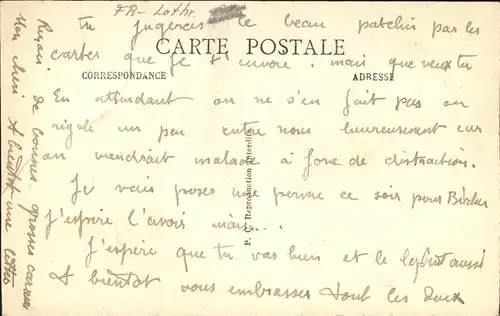 FR - Lothr.
Tu jugeras le beau patelin par les
CARTE POSTALE
cartes que je t'envoie. mais que veux tu
CORRESPONDANCE
ADRESSE
En attendant on ne s'en fait pas on
rigole un peu entre nous heureusement car
on viendrait malade à force de distraction.
Je vais poser une perme ce soir pour
J'espère l'avoir mais...
J'espère que tu vas bien et le aussi
A bientôt vous embrasser tout les deux
P. C. Reproduction Interdite
Reçois de bonnes grosses caresses
Mon chéri A bientôt une lettre